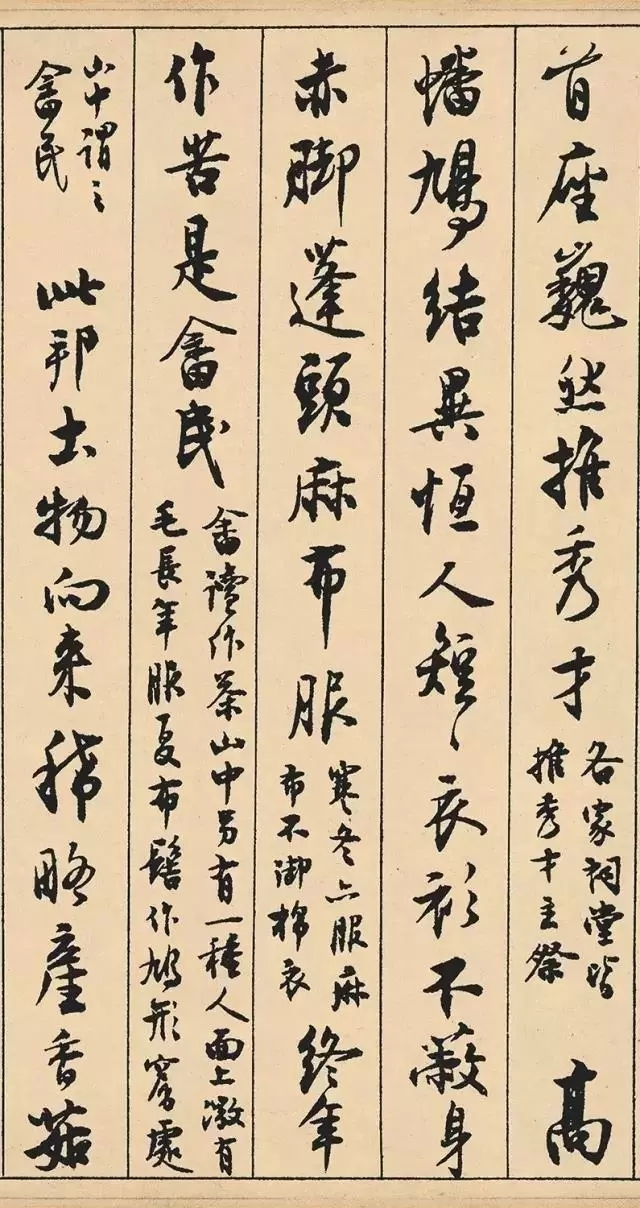 首座巍然推秀才
各家祠堂皆
推秀才主祭
高
蟠鳩結異恒人短〻衣衫不蔽身
赤脚蓬頭麻布服
寒冬亦服麻
布不御棉衣
終年
作苦是畲民
畲讀作茶山中另有一種人面上微有
毛長年服夏布髻作鳩形處
山中謂之
畲民
此邦土物向来稀略產香菇